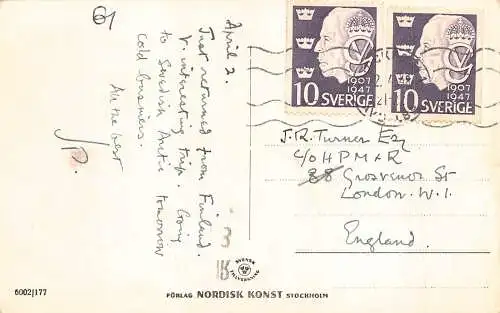 April 2.
Just returned from Finland.
V. interesting trip. Going
to Swedish Arctic tomorrow
cold business.
All the best
10 SVERIGE
1907
1947
10 SVERIGE
1907
1947
J.R. Turner Esq
c/o H P M & R
38 Grosvenor St
London. W.1.
England.
SVENSK
TILLVERKNING
6002/177
FÖRLAG NORDISK KONST STOCKHOLM